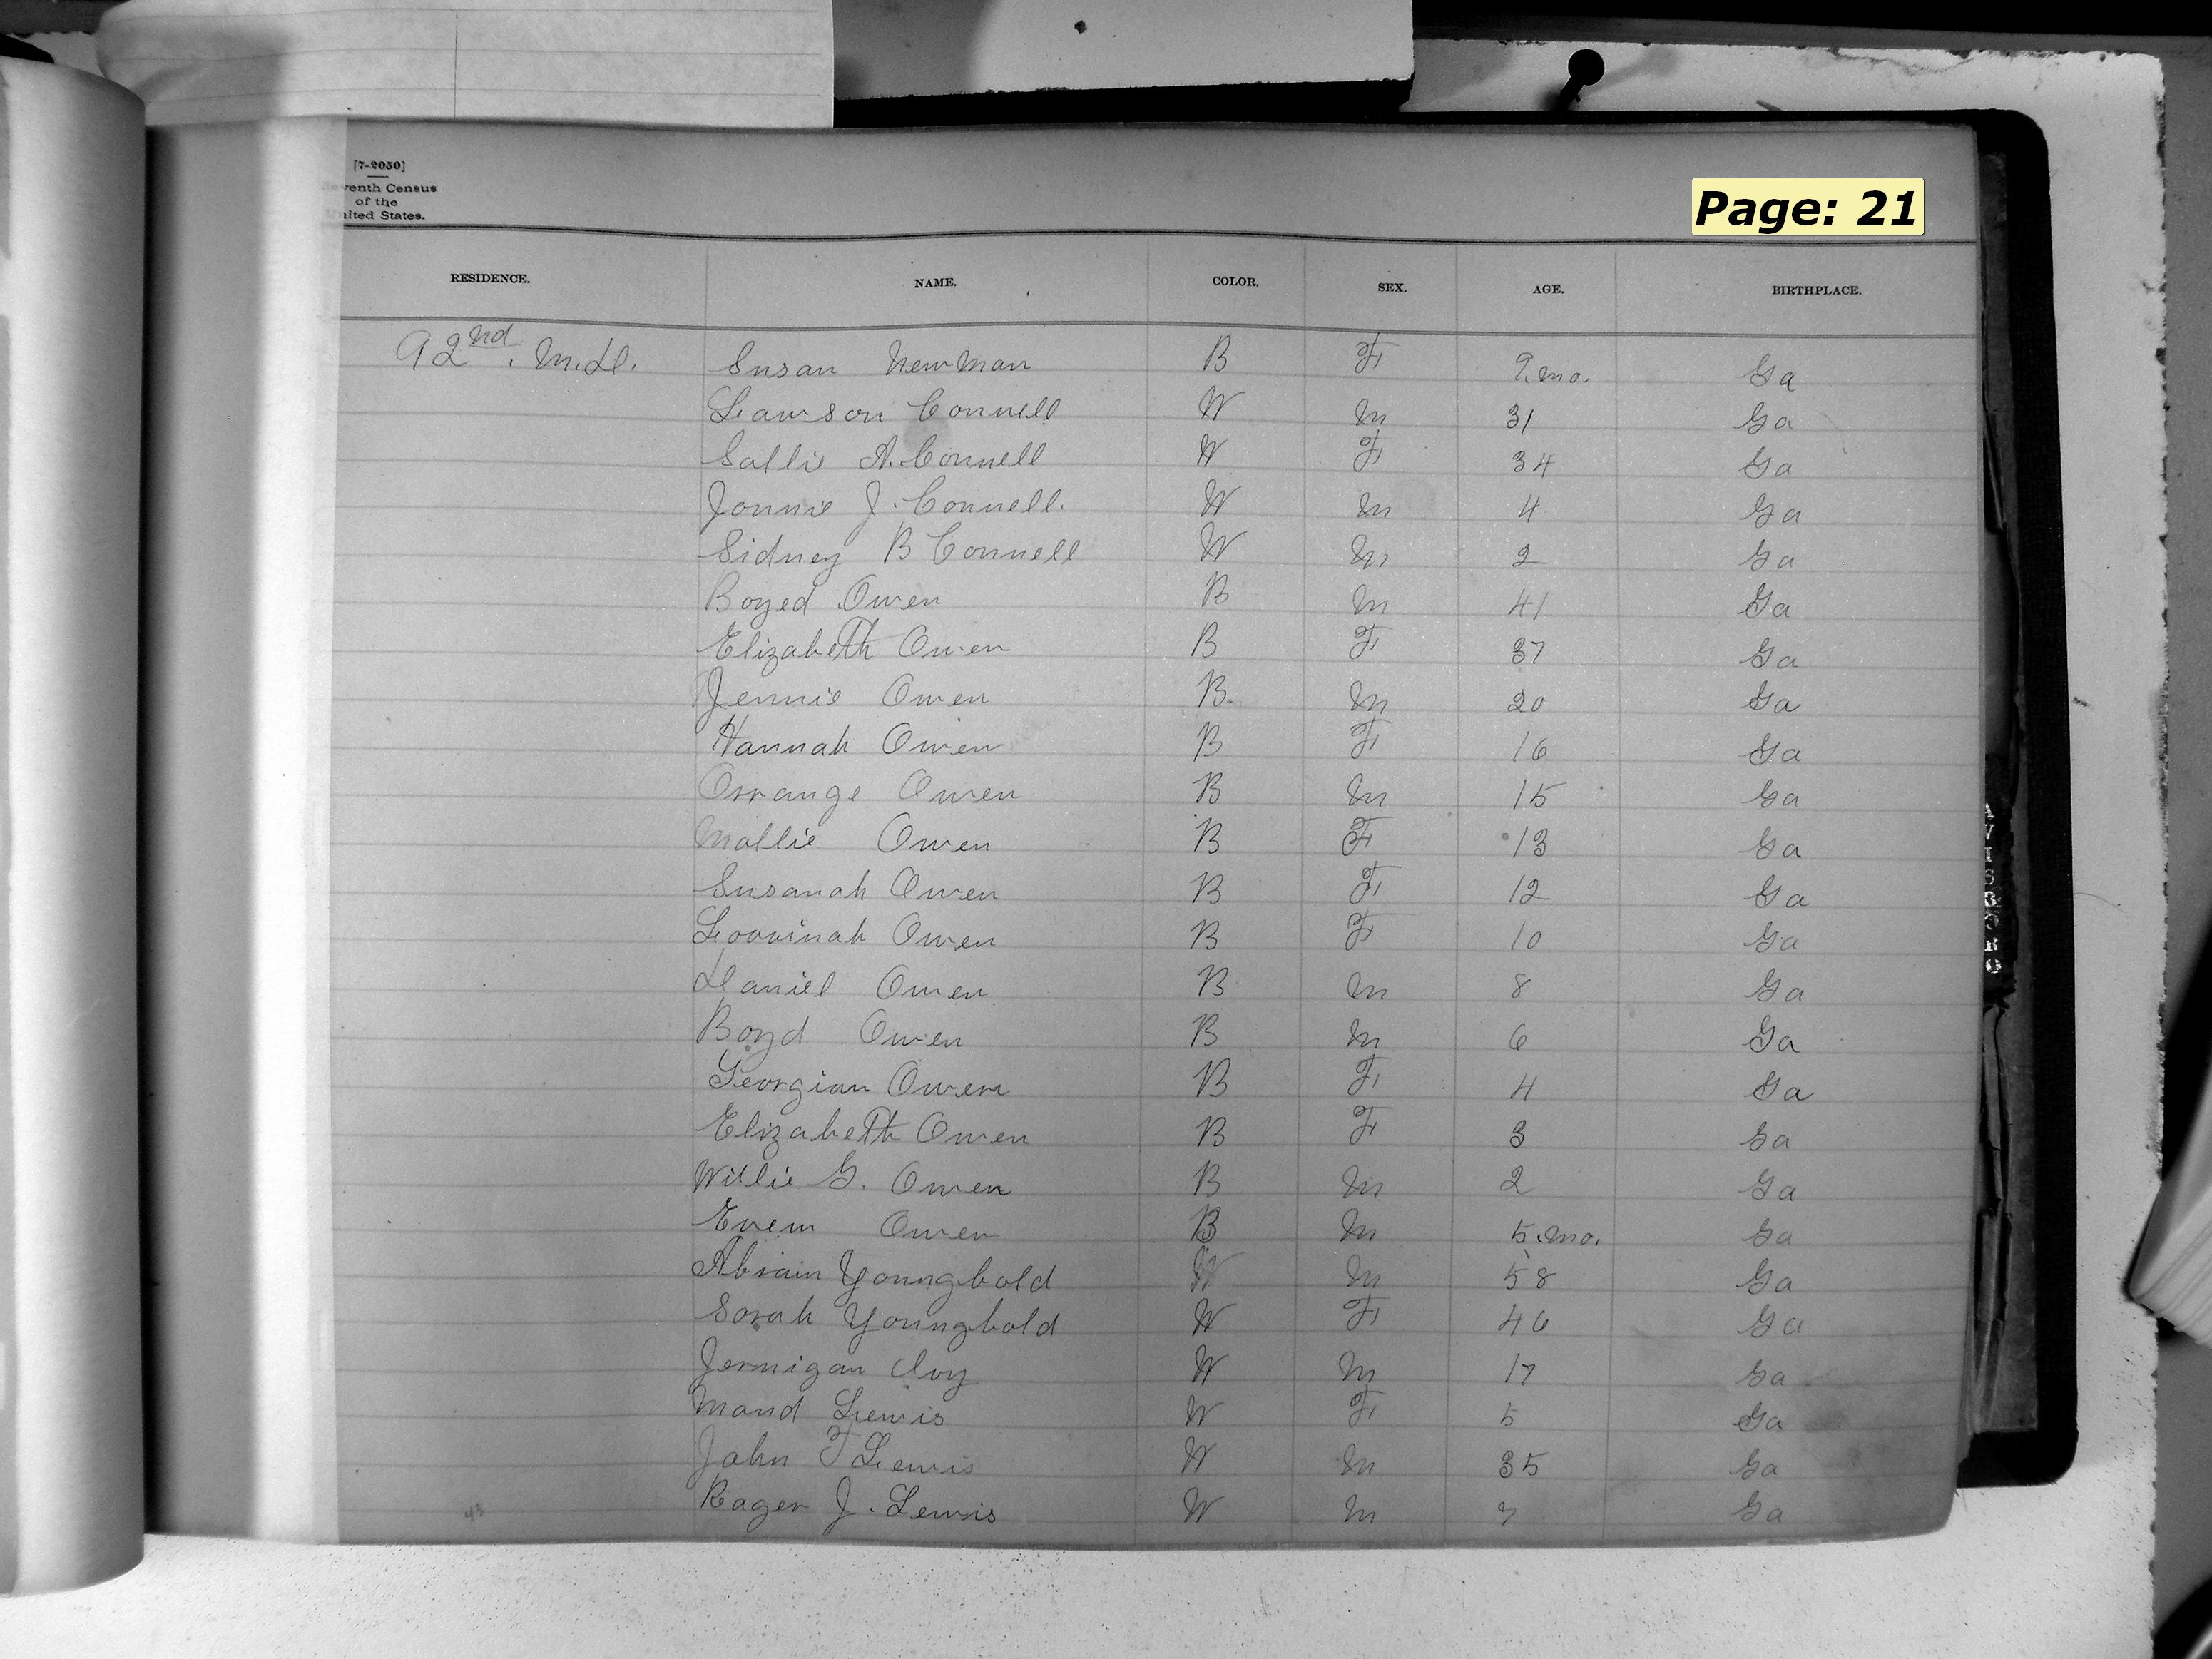 [7-2050]
venth Census
of the
nited States.
Page: 21
RESIDENCE. NAME. COLOR. SEX. AGE. BIRTHPLACE.
92nd. M.D. Susan Newman B F 9.mo. Ga
Lawson Connell W M 31 Ga
Sallie A. Connell W F 34 Ga
Jonnie J. Connell. W M 4 Ga
Sidney B Connell W M 2 Ga
Boyed Owen B M 41 Ga
Elizabeth Owen B F 37 Ga
Jennie Owen B. M 20 Ga
Hannah Owen B F 16 Ga
Orrange Owen B M 15 Ga
Mollie Owen B F 13 Ga
Susanah Owen B F 12 Ga
Lovvinah Owen B F 10 Ga
Daniel Owen B M 8 Ga
Boyd Owen B M 6 Ga
Georgian Owen B F 4 Ga
Elizabeth Owen B F 3 Ga
Willie G. Owen B M 2 Ga
Evem Owen B M 5.mo. Ga
Abraim Youngbold W M 58 Ga
Sarah Youngbold W F 46 Ga
Jernigan Ivy W M 17 Ga
Maud Lewis W F 5 Ga
John F Lewis W M 35 Ga
Rager J. Lewis W M Ga
43